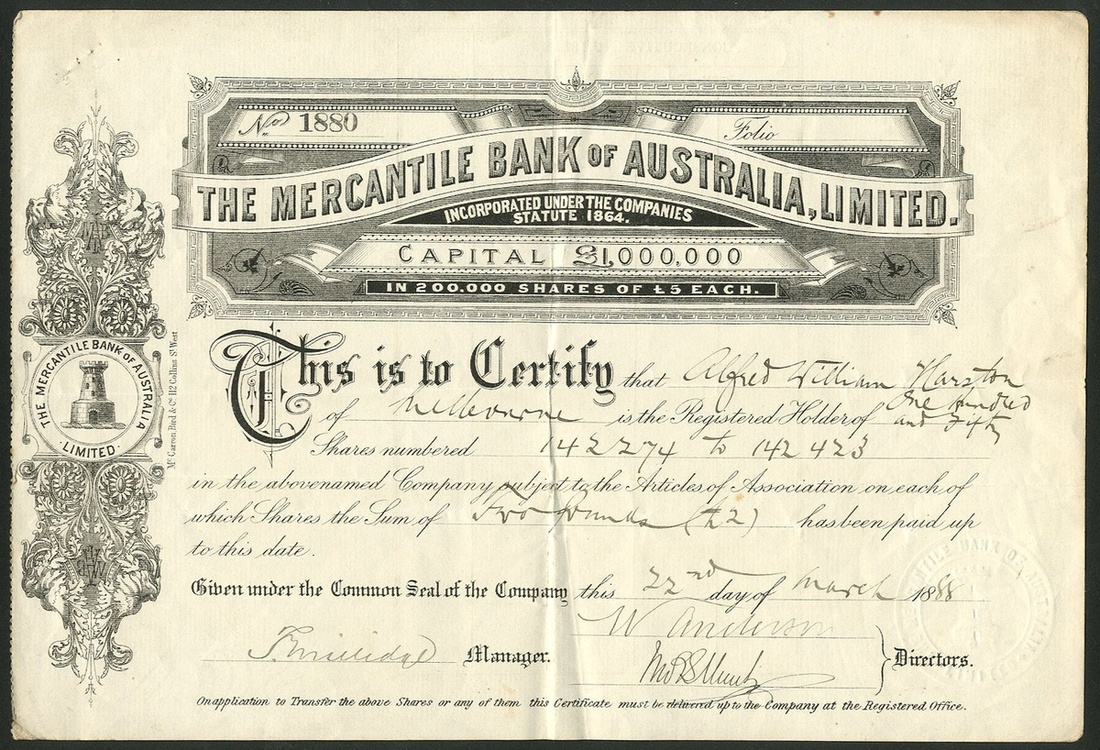 No. 1880
Folio
THE MERCANTILE BANK OF AUSTRALIA, LIMITED.
INCORPORATED UNDER THE COMPANIES
STATUTE 1864.
CAPITAL £1,000,000
IN 200.000 SHARES OF £5 EACH.
THE MERCANTILE BANK OF AUSTRALIA
LIMITED
McCarron Bird & Co. 112 Collins St. West
This is to Certify that Alfred William Harston
of Melbourne is the Registered Holder of One hundred
and Fifty
Shares numbered 142274 to 142423
in the abovenamed Company subject to the Articles of Association on each of
which Shares the Sum of Two pounds (£2) has been paid up
to this date.
Given under the Common Seal of the Company this 22nd day of March 1888
W Anderson
Manager.
Directors.
On application to Transfer the above Shares or any of them this Certificate must be delivered up to the Company at the Registered Office.